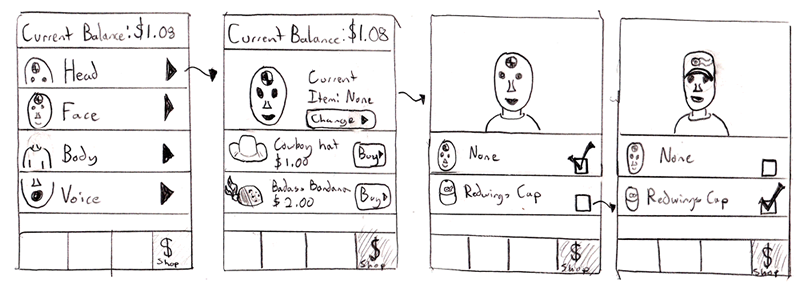 Current Balance: $1.08
Head
Face
Body
Voice
$
Shop
Current Balance: $1.08
Current
Item: None
Change
Cowboy hat
$1.00
Buy
Badass Bandana
$2.00
Buy
$
Shop
None
Redwings Cap
$
Shop
None
Redwings Cap
$
Shop